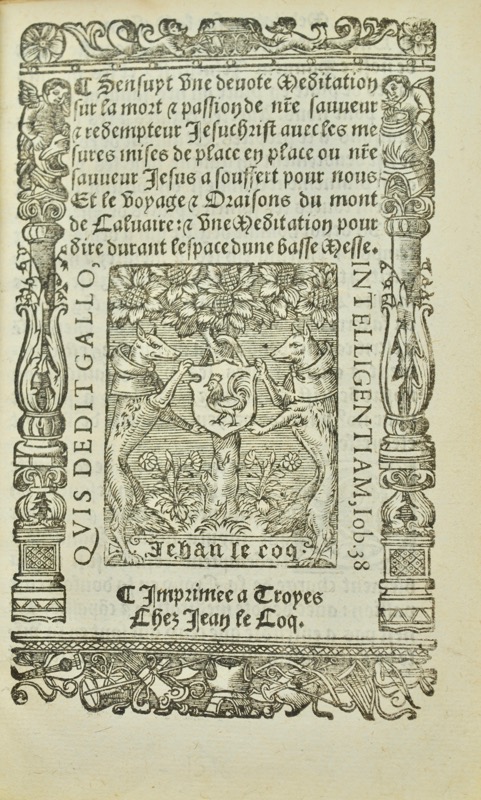 ⁋ Sensuyt vne deuote Meditation
sur la mort ⁊ passion de nr̃e sauueur
⁊ redempteur Jesuchrist auec les me
sures mises de place en place ou nr̃e
sauueur Jesus a souffert pour nous
Et le voyage ⁊ Oraisons du mont
de Caluaire: ⁊ vne Meditation pour
dire durant lespace dune basse Messe.
QVIS DEDIT GALLO,
INTELLIGENTIAM, Iob. 38
Jehan le coq.
⁋ Imprimee a Troyes
Chez Jean le Coq.